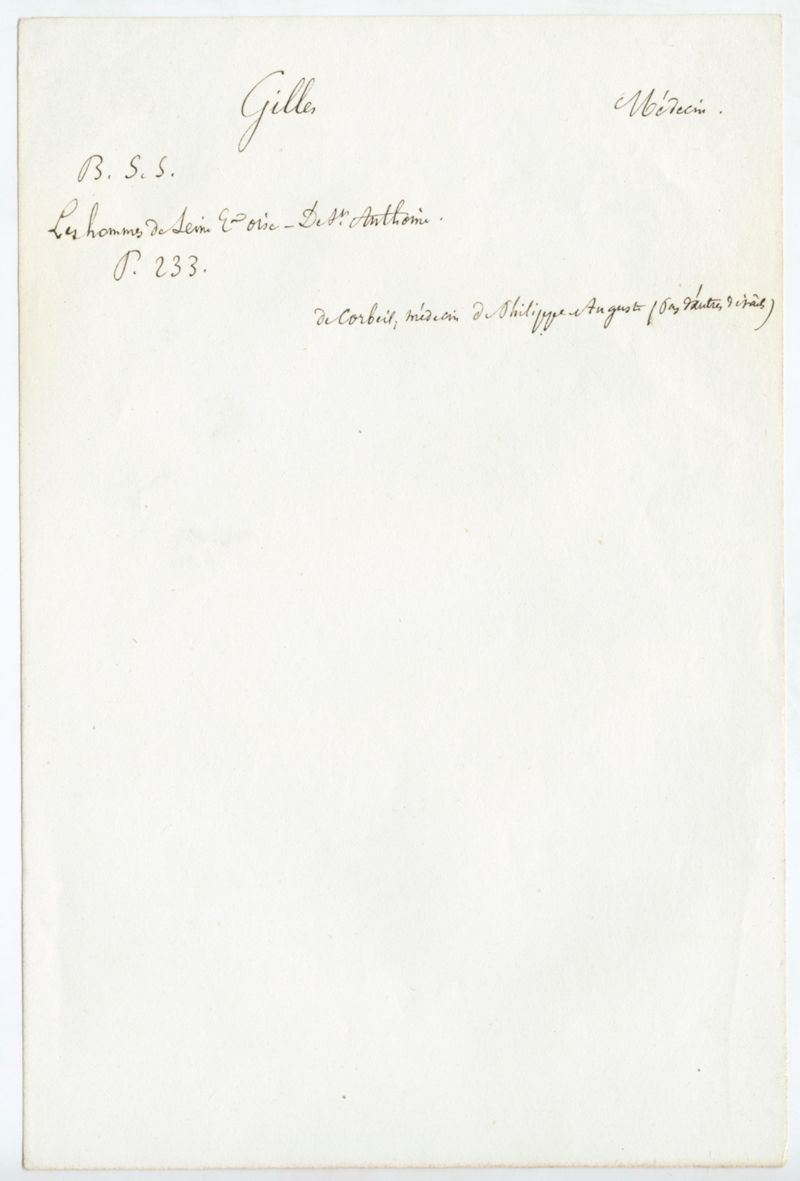 Gilles Médecin.
B. S. S.
Les hommes de Seine et oise - De St. Anthoine.
P. 233.
de Corbeil, médecin de Philippe-Auguste (Pas d'autres détails)